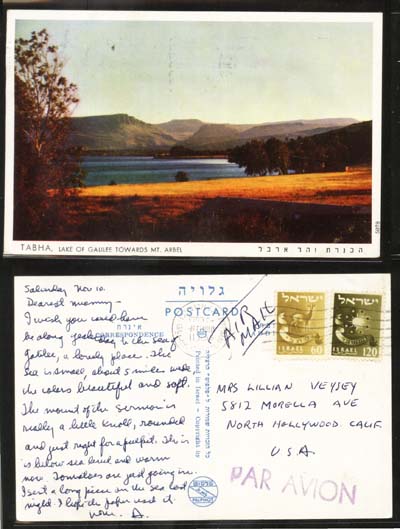 TABHA, LAKE OF GALILEE TOWARDS MT. ARBEL
הכנרת והר ארבל
Saturday Nov 10.
Dearest mommy -
I wish you could have
been along yesterday to the Sea of
Galilee, a lovely place. The
sea is small, about 5 miles wide
the colors beautiful and soft.
The mount of the sermon is
really a little knoll, rounded
and just right for a pulpit. This is
is below sea level and warm
now. Tomatoes are just going in.
I sent a long piece on the Sea last
night. I hope the paper used it.
love. A.
גלויה
POSTCARD
CORRESPONDENCE
Printed in Israel - Copyright by
AIR
MAIL
ישראל
ISRAEL
60
ישראל
ISRAEL
120
MRS LILLIAN VEYSEY
5812 MORELLA AVE
NORTH HOLLYWOOD CALIF.
U.S.A.
PAR AVION